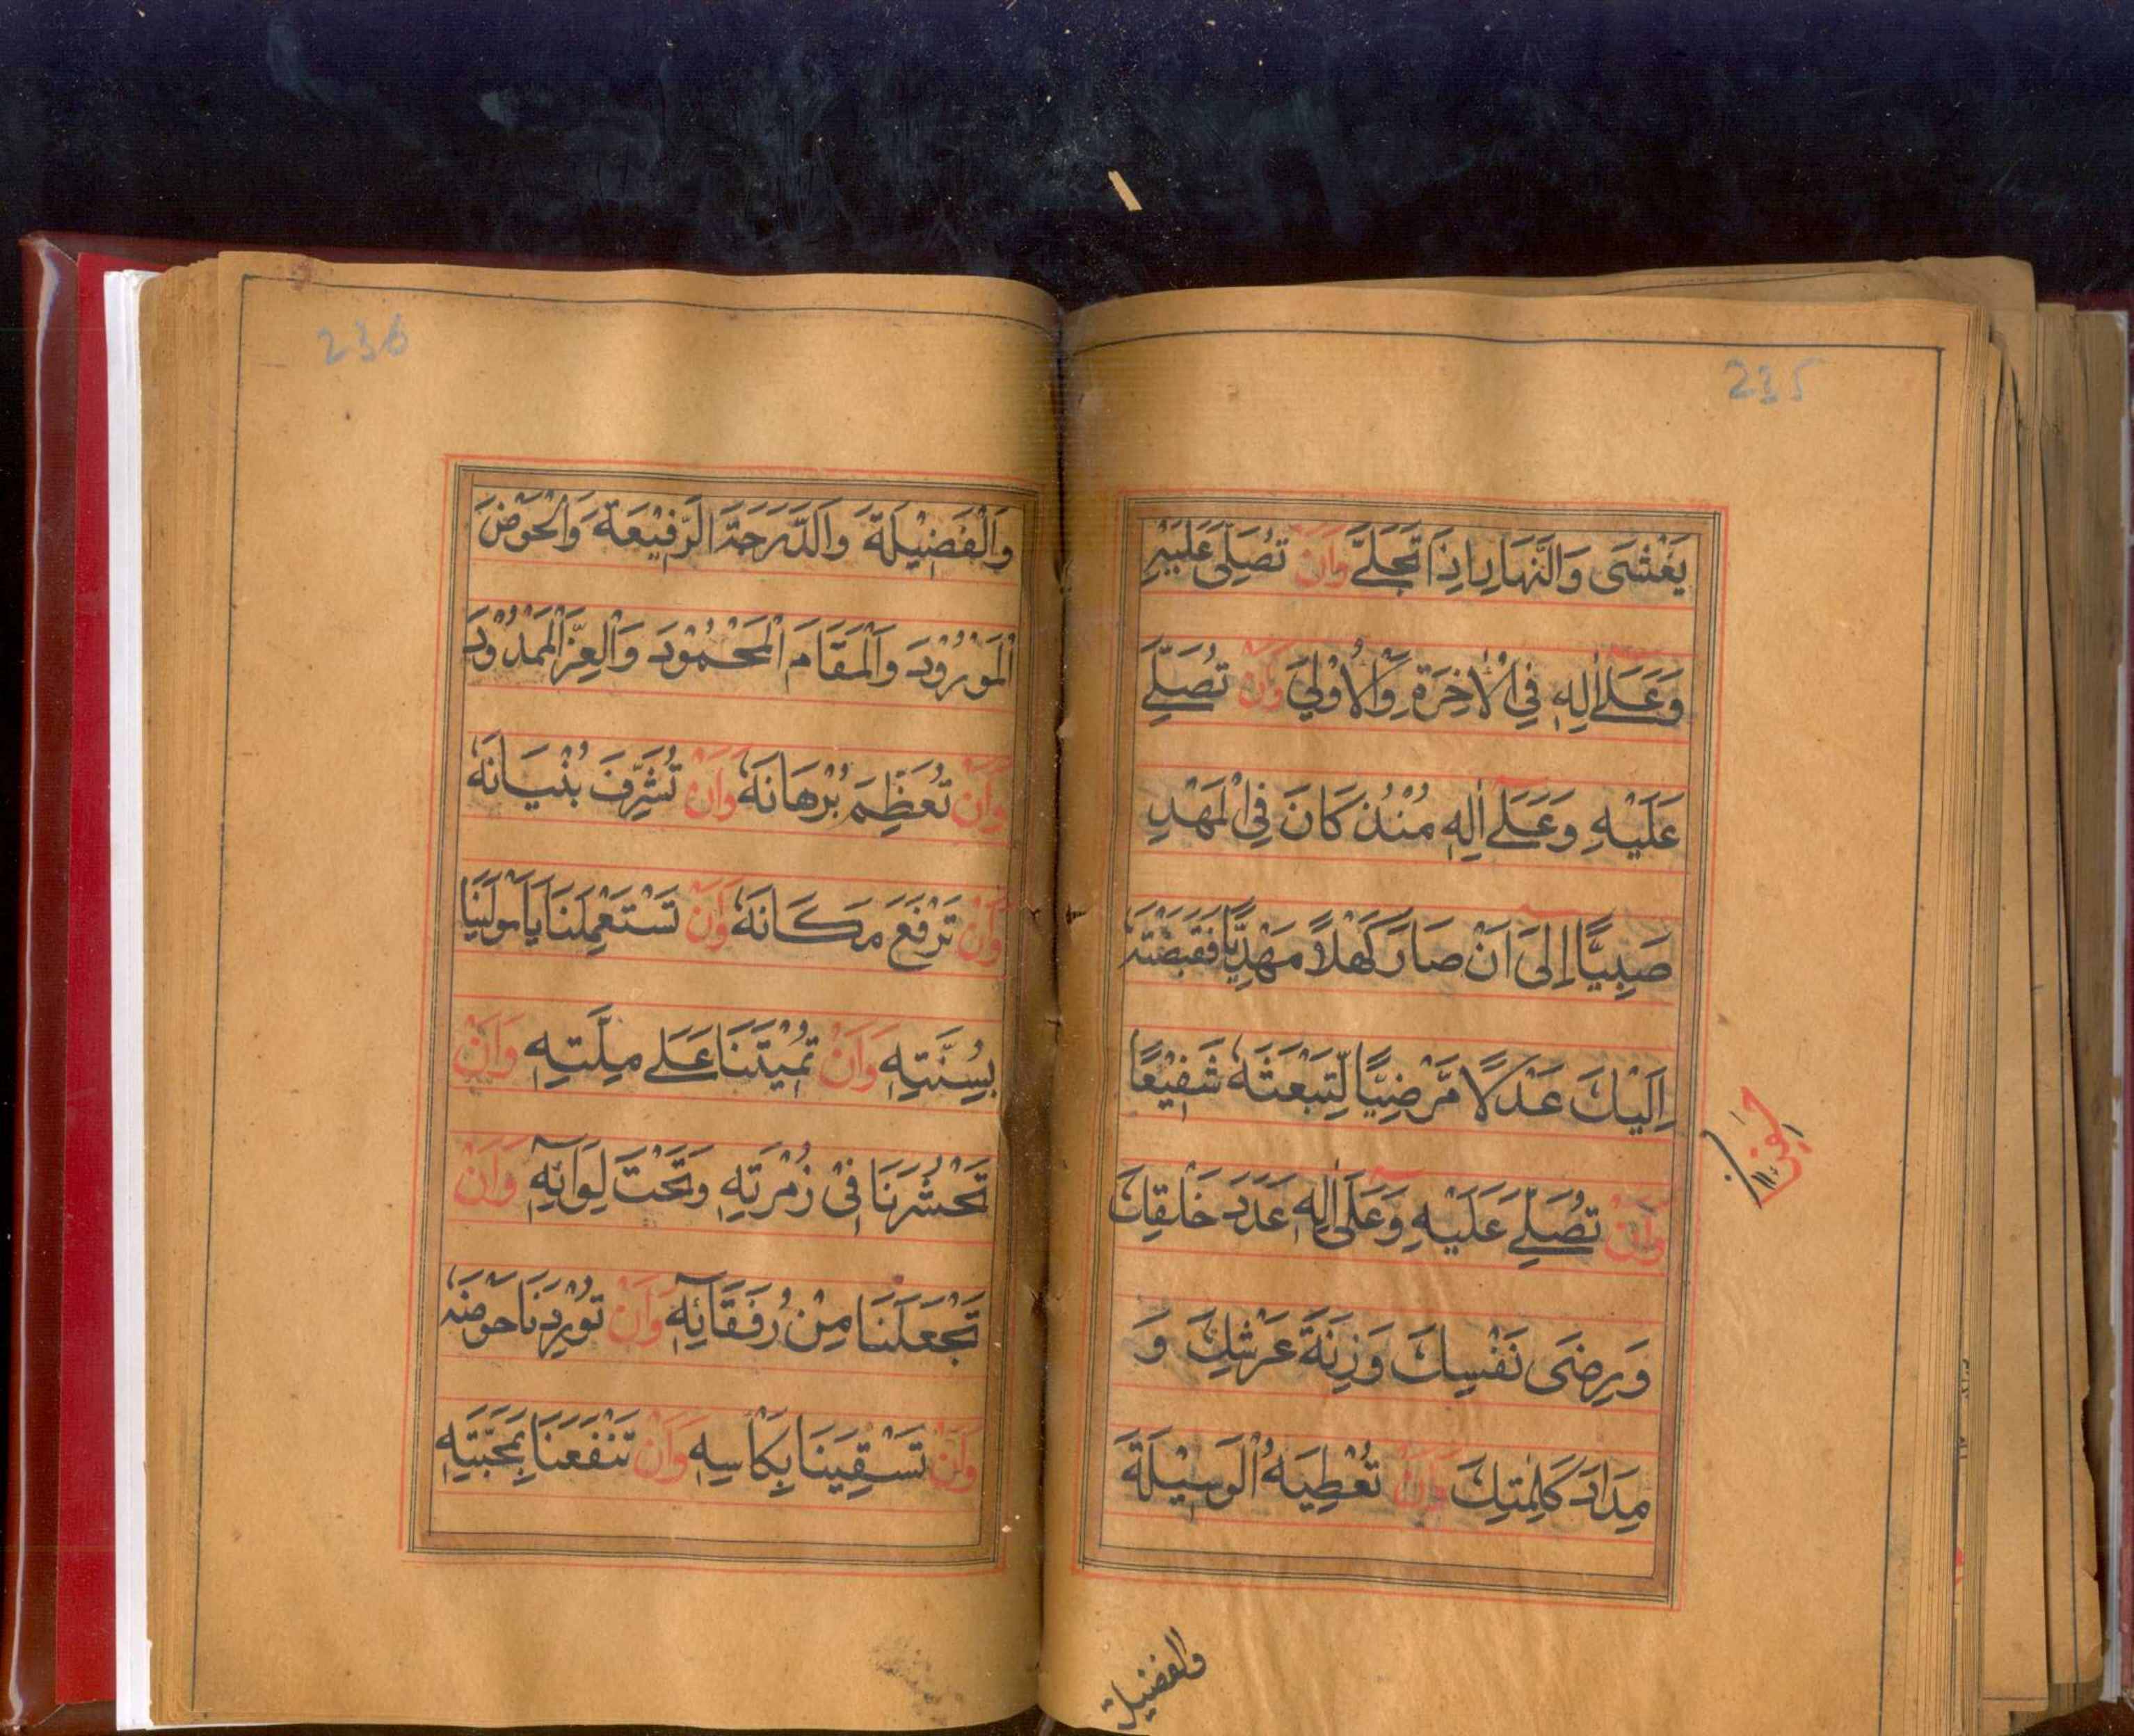 235
يَغْشَى وَالنَّهَارِ اِذَا تَجَلّٰے وَاَنْ تُصَلِّىَ عَلَيْهِ
وَعَلٰۤے اٰلِهٖ فِى الْاٰخِرَةِ وَالْاُوْلٰى وَاَنْ تُصَلِّىَ
عَلَيْهِ وَعَلٰۤے اٰلِهٖ مُنْذُ كَانَ فِى الْمَهْدِ
صَبِيًّا اِلٰۤى اَنْ صَارَ كَهْلًا مَهْدِيًّا فَقَبَضْتَهٗ
اِلَيْكَ عَدْلًا مَّرْضِيًّا لِّتَبْعَثَهٗ شَفِيْعًا
وَاَنْ تُصَلِّىَ عَلَيْهِ وَعَلٰۤى اٰلِهٖ عَدَدَ خَلْقِكَ
وَرِضَى نَفْسِكَ وَزِنَةَ عَرْشِكَ وَ
مِدَادَ كَلِمٰتِكَ وَاَنْ تُعْطِيَهُ الْوَسِيْلَةَ
والفضيلة
236
وَالْفَضِيْلَةَ وَالدَّرَجَةَ الرَّفِيْعَةَ وَالْحَوْضَ
الْمَوْرُوْدَ وَالْمَقَامَ الْمَحْمُوْدَ وَالْعِزَّ الْمَمْدُوْدَ
وَاَنْ تُعَظِّمَ بُرْهَانَهٗ وَاَنْ تُشَرِّفَ بُنْيَانَهٗ
وَاَنْ تَرْفَعَ مَكَانَهٗ وَاَنْ تَسْتَعْمِلَنَا يَا مَوْلٰنَا
بِسُنَّتِهٖ وَاَنْ تُمِيْتَنَا عَلٰے مِلَّتِهٖ وَاَنْ
تَحْشُرَنَا فِىْ زُمْرَتِهٖ وَتَحْتَ لِوَآئِهٖ وَاَنْ
تَجْعَلَنَا مِنْ رُفَقَآئِهٖ وَاَنْ تُوْرِدَنَا حَوْضَهٗ
وَاَنْ تَسْقِيَنَا بِكَاْسِهٖ وَاَنْ تَنْفَعَنَا بِمَحَبَّتِهٖ